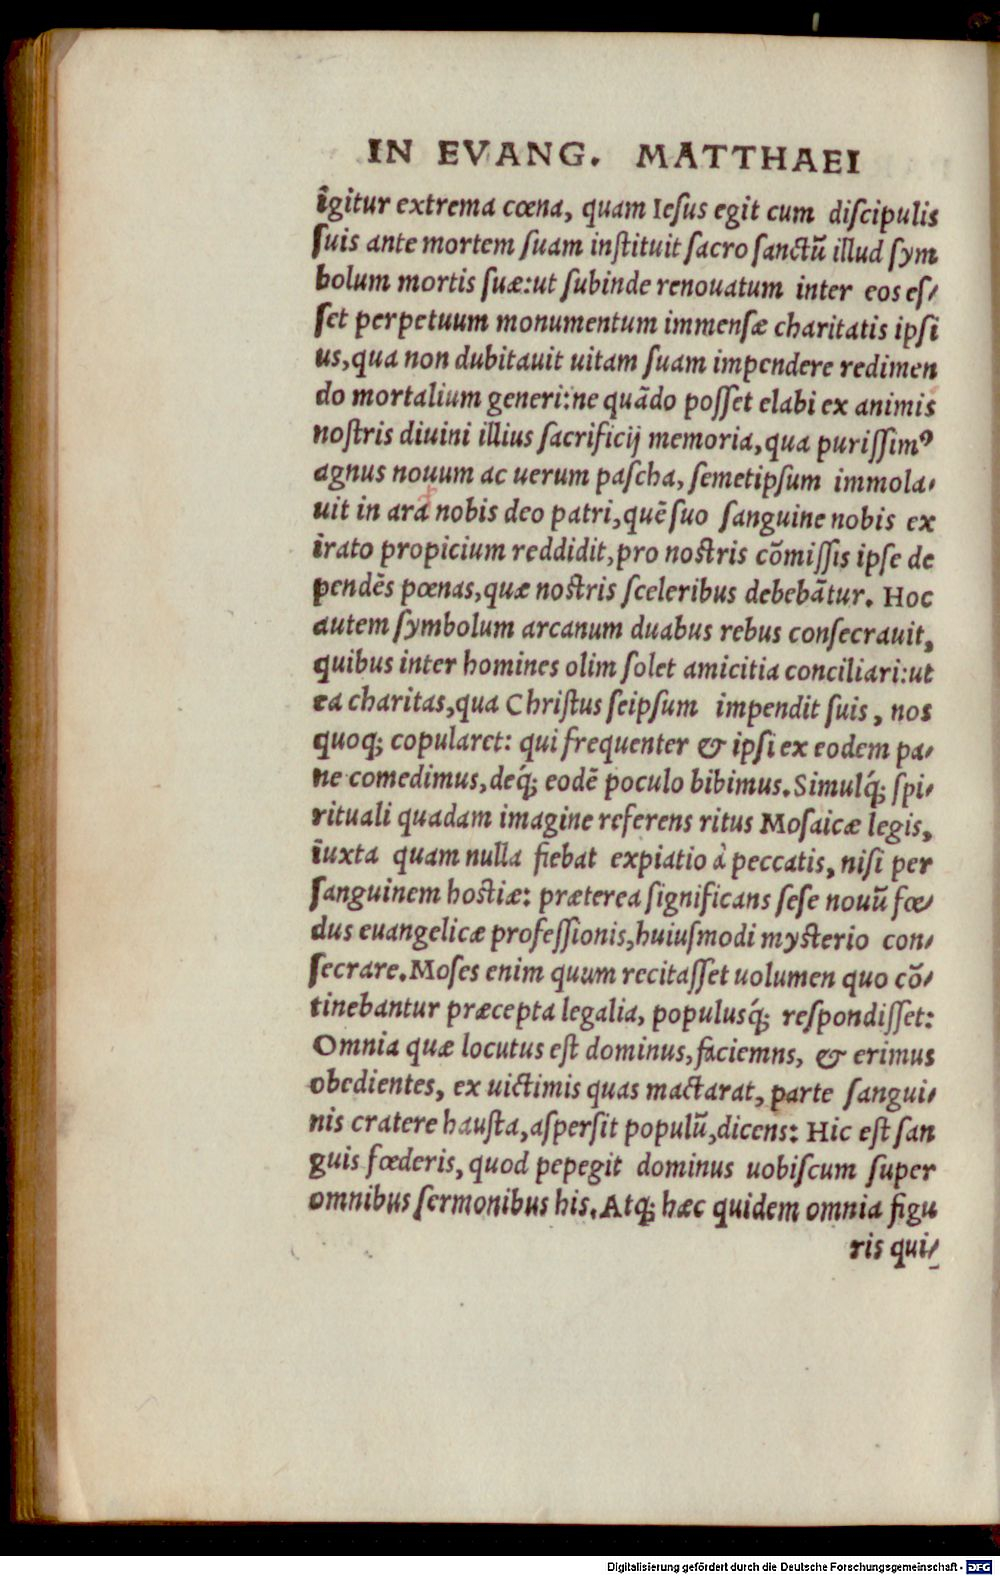 IN EVANG. MATTHAEI
igitur extrema cœna, quam Iesus egit cum discipulis
suis ante mortem suam instituit sacro sanctũ illud sym
bolum mortis suæ:ut subinde renouatum inter eos es-
set perpetuum monumentum immensæ charitatis ipsi
us,qua non dubitauit uitam suam impendere redimen
do mortalium generi:ne quãdo posset elabi ex animis
nostris diuini illius sacrificij memoria,qua purissimꝰ
agnus nouum ac uerum pascha, semetipsum immola-
uit in ara nobis deo patri,quẽ suo sanguine nobis ex
irato propicium reddidit,pro nostris cõmissis ipse de
pendẽs pœnas,quæ nostris sceleribus debebãtur. Hoc
autem symbolum arcanum duabus rebus consecrauit,
quibus inter homines olim solet amicitia conciliari:ut
ea charitas,qua Christus seipsum impendit suis, nos
quoq; copularet: qui frequenter & ipsi ex eodem pa-
ne comedimus,deq́; eodẽ poculo bibimus.Simulq́; spi-
rituali quadam imagine referens ritus Mosaicæ legis,
iuxta quam nulla fiebat expiatio à peccatis, nisi per
sanguinem hostiæ: præterea significans sese nouũ fœ-
dus euangelicæ professionis,huiusmodi mysterio con-
secrare.Moses enim quum recitasset uolumen quo cõ-
tinebantur præcepta legalia, populusq́; respondisset:
Omnia quæ locutus est dominus,faciemns, & erimus
obedientes, ex uictimis quas mactarat, parte sangui-
nis cratere hausta,aspersit populũ,dicens: Hic est san
guis fœderis, quod pepegit dominus uobiscum super
omnibus sermonibus his.Atq; hæc quidem omnia figu
ris qui-
Digitalisierung gefördert durch die Deutsche Forschungsgemeinschaft - DFG